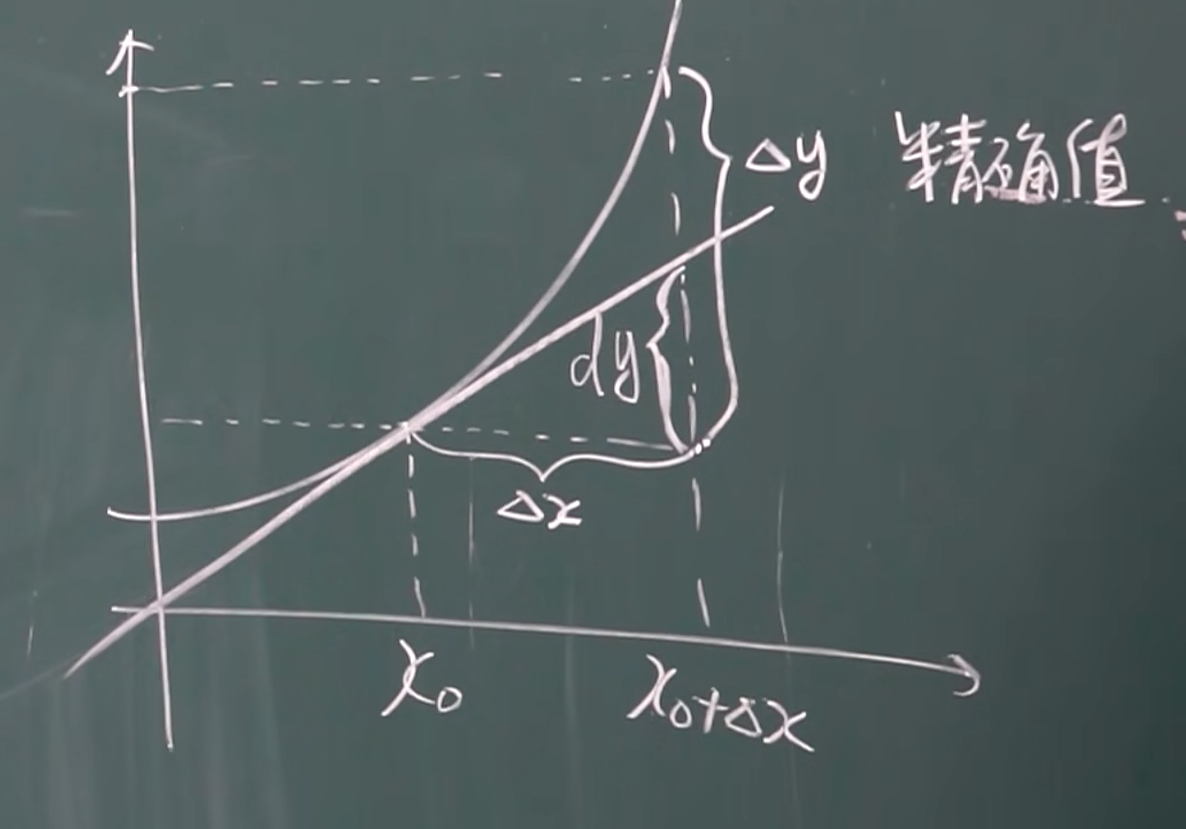 Δy 精确值
dy
Δx
x₀ x₀+Δx